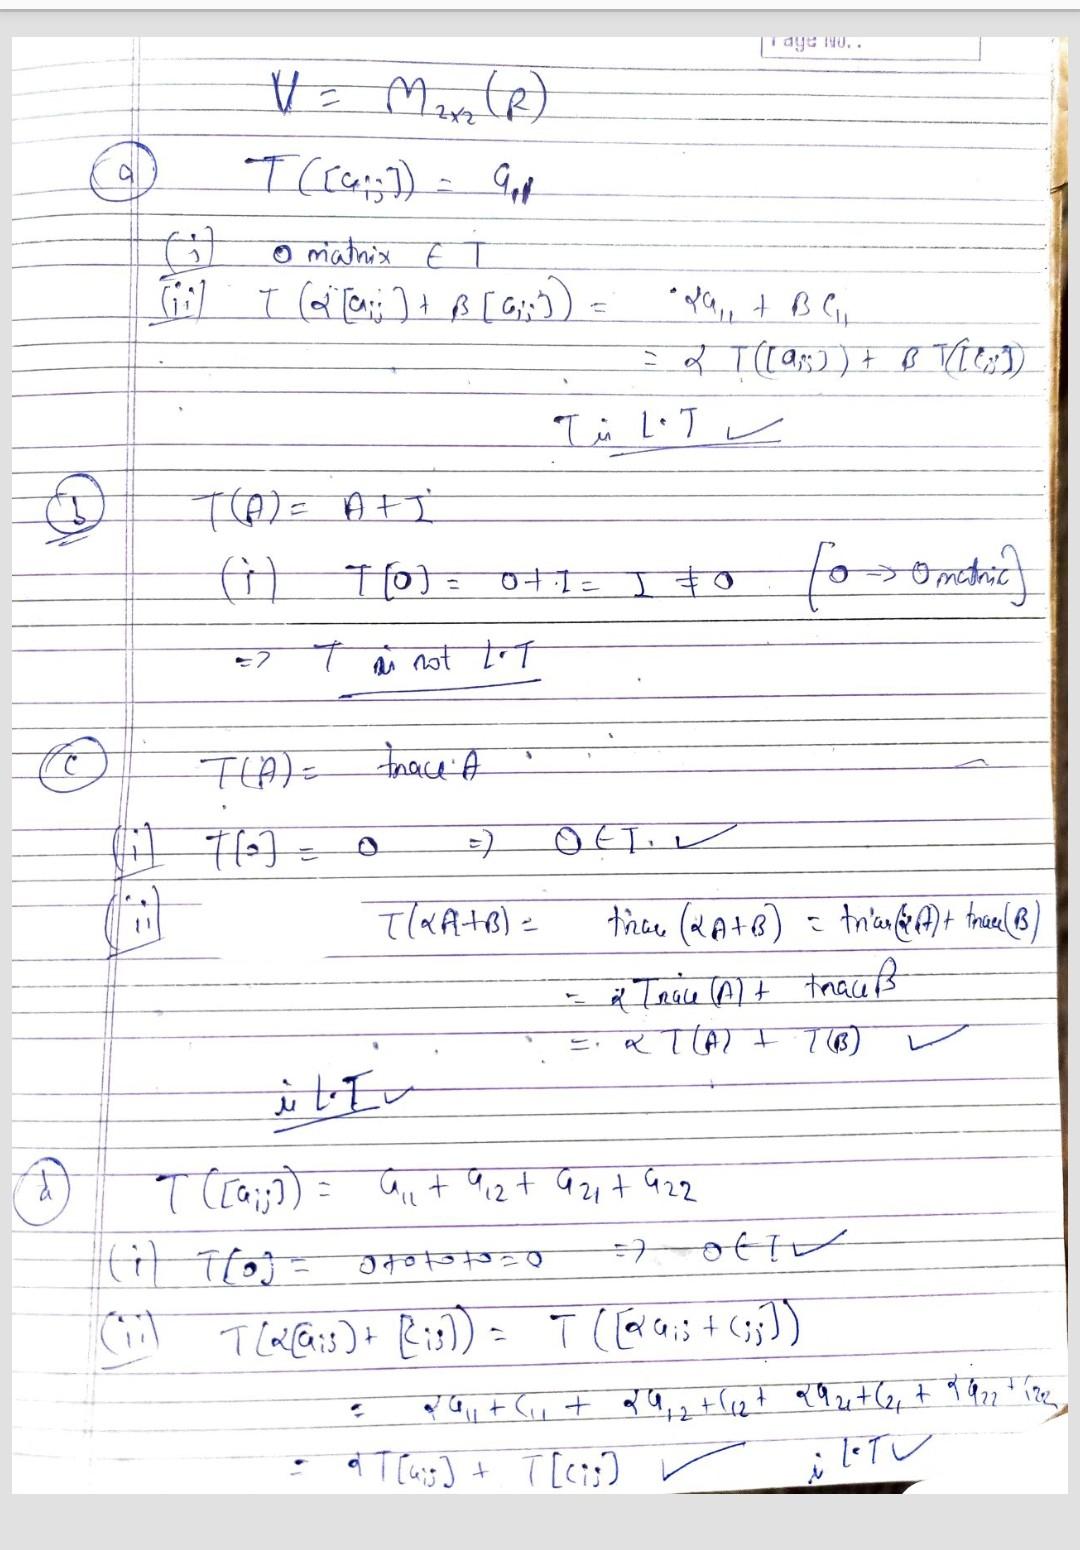 Page No. :
V = M₂ₓ₂(R)
(a) T([aᵢⱼ]) = a₁₁
(i) 0 matrix ∈ T
(ii) T(α[aᵢⱼ] + β[cᵢⱼ]) = αa₁₁ + βc₁₁
= α T([aᵢⱼ]) + β T([cᵢⱼ])
T is L.T ✓
(b) T(A) = A + I
(i) T[0] = 0 + I = I ≠ 0 [0 → 0 matric]
=> T is not L.T
(c) T(A) = trace A
(i) T[0] = 0 => 0 ∈ T. ✓
(ii) T(αA+B) = trace (αA+B) = trace(αA) + trace(B)
= α Trace (A) + trace B
= α T(A) + T(B) ✓
is L.T ✓
(d) T([aᵢⱼ]) = a₁₁ + a₁₂ + a₂₁ + a₂₂
(i) T[0] = 0+0+0+0=0 => 0 ∈ T ✓
(ii) T(α[aᵢⱼ] + [cᵢⱼ]) = T([αaᵢⱼ + cᵢⱼ])
= αa₁₁ + c₁₁ + αa₁₂ + c₁₂ + αa₂₁ + c₂₁ + αa₂₂ + c₂₂
= αT[aᵢⱼ] + T[cᵢⱼ] ✓ is L.T ✓